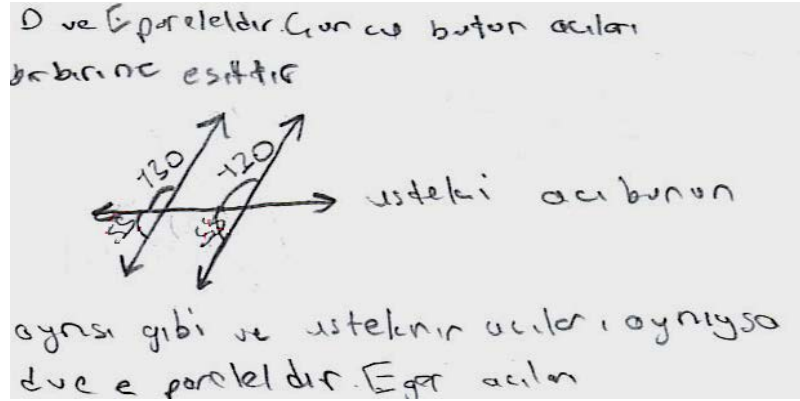 D ve E pareleldir. Çün cü bütün acıları
birbirine esittir
130 120
55 55
usteki acı bunun
aynısı gibi ve usteknir acıları aynıysa
d ve e parelel dir. Eger acıları